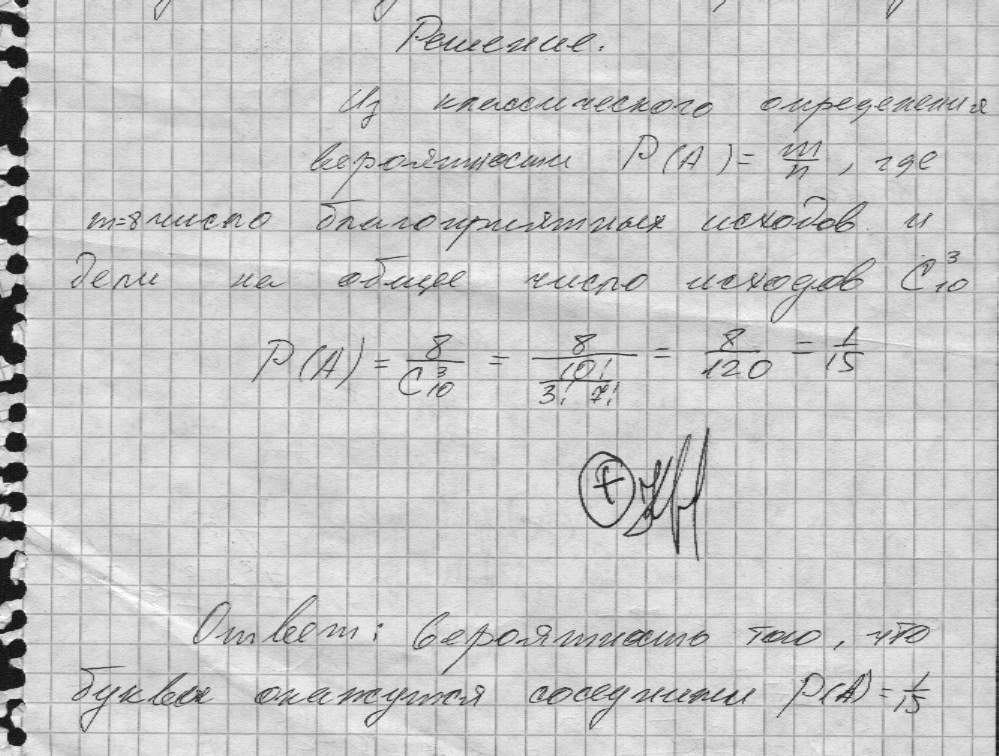 Решение.
Из классического определения
вероятности P(A) = m/n, где
m=8 число благоприятных исходов и
дели на общее число исходов C₁₀³
P(A) = 8/C₁₀³ = 8/(10!/(3! 7!)) = 8/120 = 1/15
+
Ответ: вероятность того, что
буквы окажутся соседними P(A) = 1/15